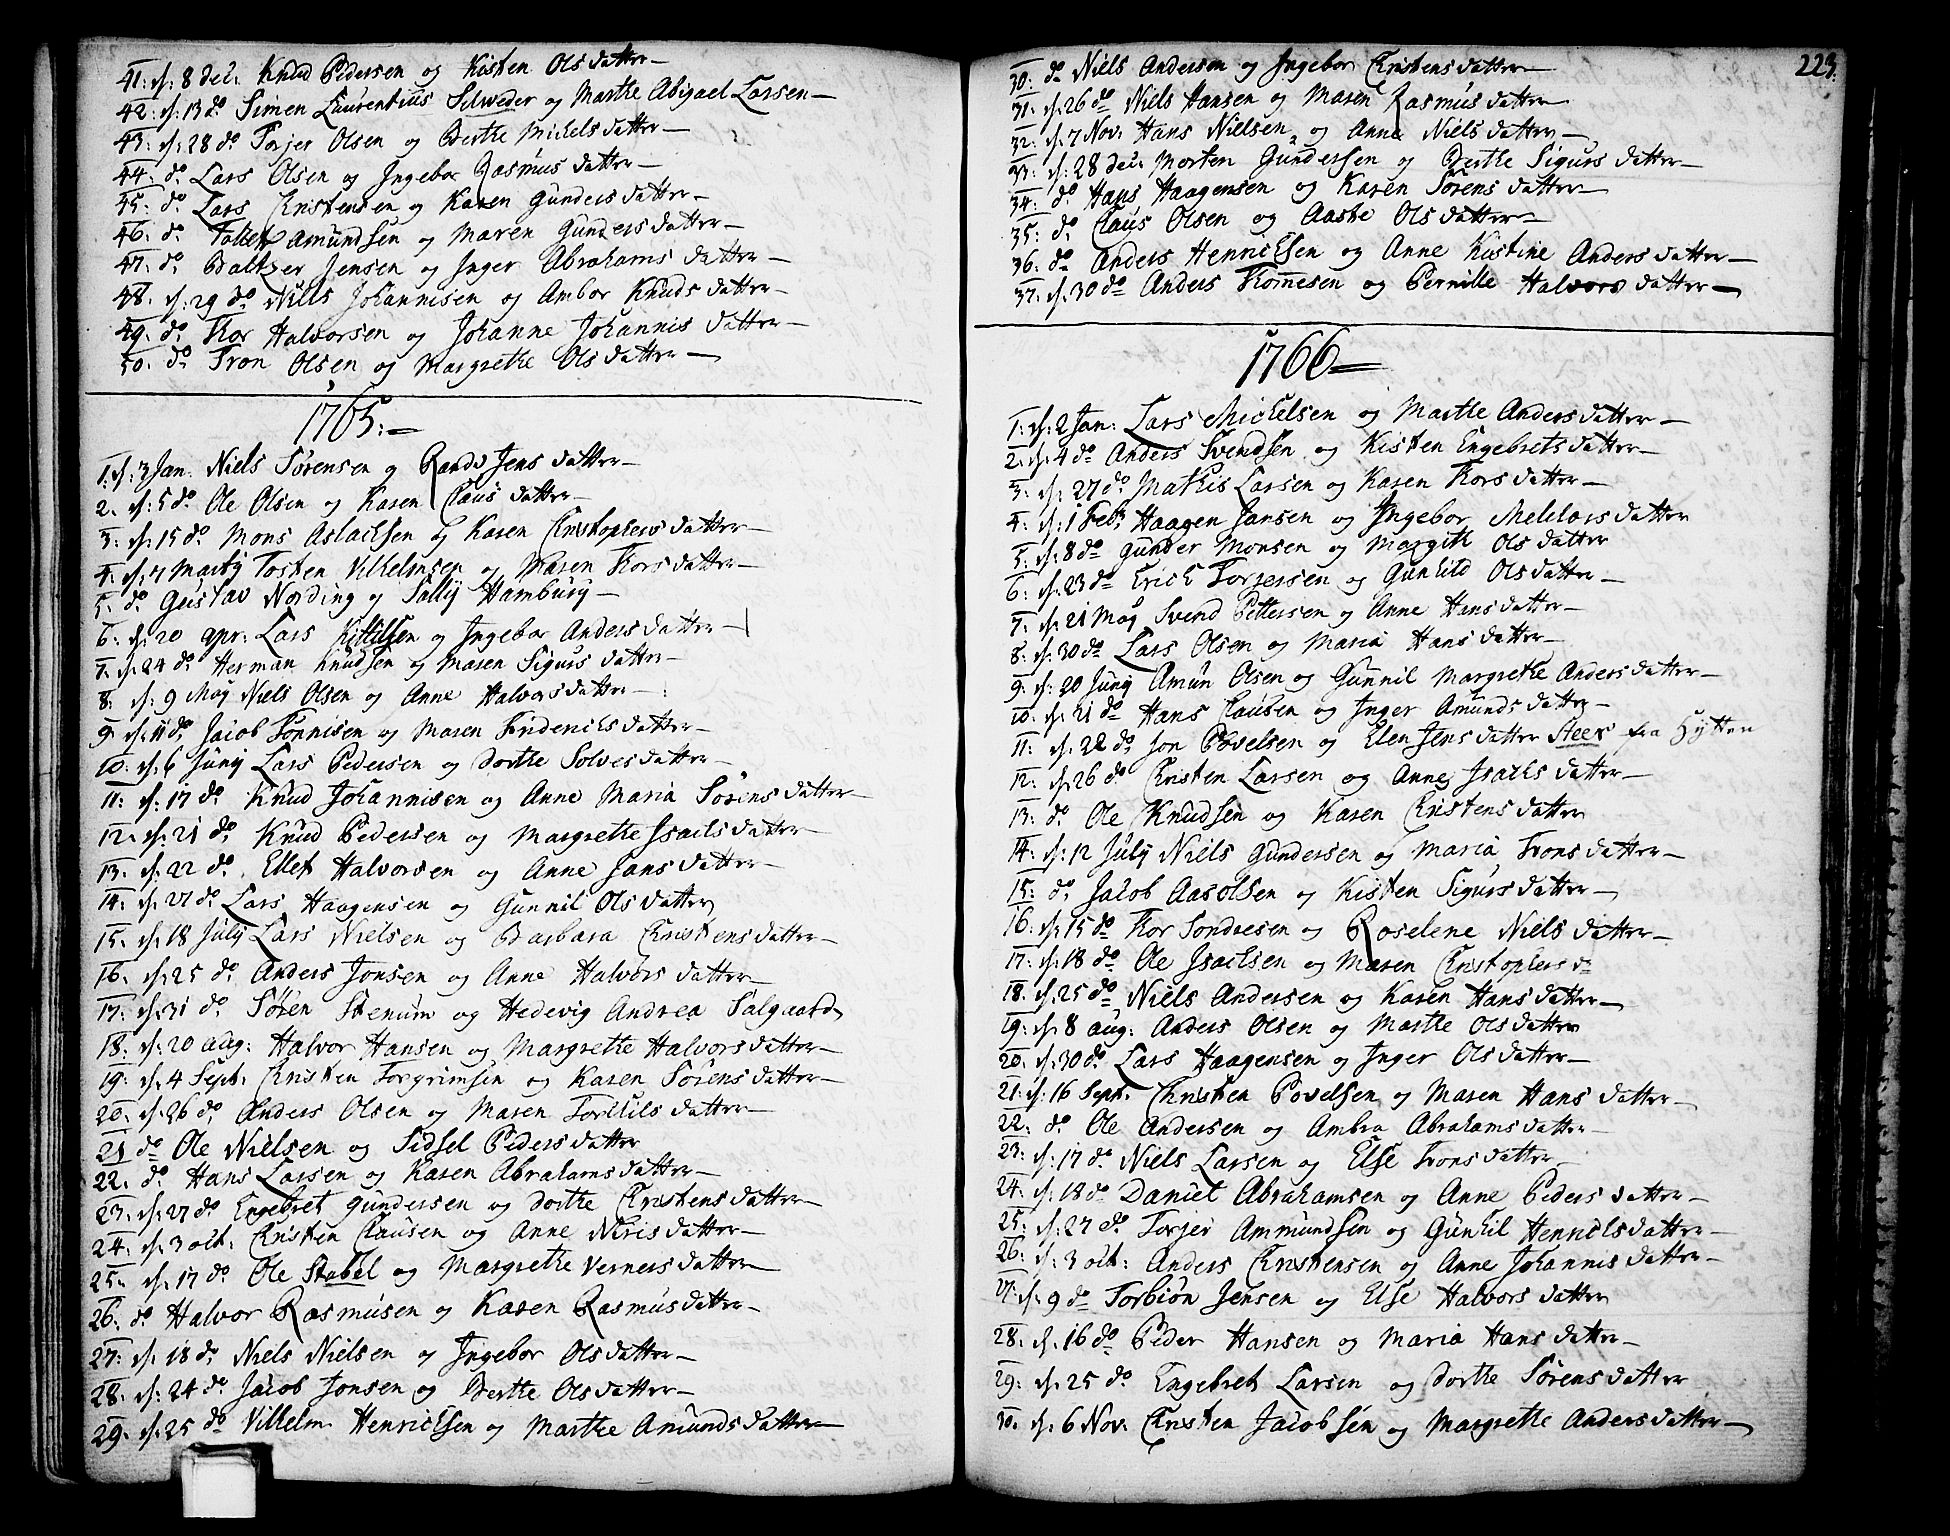 41: d: 8 dec: Knud Pedersen og Kisten Olsdatter
42: d: 13 do Simen Laurentius Silweder og Marthe Abigael Larsen
43: d: 28 do Torjer Olsen og Berthe Mickelsdatter
44: do Lars Olsen og Ingebor Rasmusdatter
45: do Lars Christensen og Karen Gundersdatter
46: do Tollef Amundsen og Maren Gundersdatter
47: do Baltzer Jensen og Inger Abrahamsdatter
48: d: 29 do Niels Johannisen og Ambor Knudsdatter
49: do Thor Halvorsen og Johanne Johannisdatter
50: do Tron Olsen og Margrethe Olsdatter
1765:
1: d: 3 Jan. Niels Sørensen og Randi Jensdatter
2. d: 5 do Ole Olsen og Karen Clausdatter
3: d: 15 do Mons Aslachsen og Karen Christophersdatter
4: d: 7 Martij Tosten Vilhelmsen og Maren Thorsdatter
5: do Gustav Nording og Sally Hamburg
6: d: 20 apr: Lars Kittilsen og Ingebor Andersdatter
7: d: 24 do Herman Knudsen og Maren Sigursdatter
8: d: 9 Maj Niels Olsen og Anne Halvorsdatter
9: d: 11 do Jacob Tønnisen og Maren Friderichsdatter
10: d: 6 Junij Lars Pedersen og Dorthe Solvesdatter
11: d: 17 do Knud Johannisen og Anne Maria Sørensdatter
12: d: 21 do Knud Pedersen og Margrethe Isachsdatter
13: d: 22 do Ellef Halvorsen og Anne Jansdatter
14: d: 27 do Lars Haagensen og Gunnil Olsdatter
15. d: 18 Julij Lars Nielsen og Barbara Christensdatter
16: d: 25 do Anders Jonsen og Anne Halvorsdatter
17: d: 31 do Søren Stenum og Hedevig Andrea Salgaard
18: d: 20 aug: Halvor Hansen og Margrethe Halvorsdatter
19: d: 4 Sept: Christen Torgrimsen og Karen Sørensdatter
20: d: 26 do Anders Olsen og Maren Torkilsdatter
21 do Ole Nielsen og Sidsel Pedersdatter
22. do Hans Larsen og Karen Abrahamsdatter
23: d: 27 do Engebret Gundersen og Dorthe Christensdatter
24: d: 3 oct: Christen Clausen og Anne Nirisdatter
25: d: 17 do Ole Stabel og Margrethe Vernersdatter
26: do Halvor Rasmusen og Karen Rasmusdatter
27: d: 18 do Niels Nielsen og Ingebor Olsdatter
28: d: 24 do Jacob Jonsen og Berthe Olsdatter
29: d: 25 do Vilhelm Henrichsen og Marthe Amundsdatter
223.
30: do Niels Andersen og Ingebor Christensdatter
31: d: 26 do Niels Hansen og Maren Rasmusdatter
32: d: 7 Nov: Hans Nielsen og Anne Nielsdatter
33: d: 28 dec: Morten Gundersen og Berthe Sigursdatter
34: do Hans Haagensen og Karen Sørensdatter
35: do Claus Olsen og Aashe Olsdatter
36: do Anders Henrichsen og Anne Kistine Andersdatter
37: d: 30 do Anders Thomesen og Pernille Halvorsdatter
1766
1: d: 2 Jan: Lars Mickelsen og Marthe Andersdatter
2: d: 4 do Anders Svendsen og Kisten Engebretsdatter
3: d: 27 do Mathis Larsen og Karen Thorsdatter
4: d: 1 Feb: Haagen Jansen og Ingebor Meldorsdatter
5: d: 8 do Gunder Monsen og Margith Olsdatter
6: d: 23 do Erich Torgersen og Gunhild Olsdatter
7: d: 21 Maj Svend Pettersen og Anne Hansdatter
8: d: 30 do Lars Olsen og Maria Hansdatter
9: d: 20 Junij Amun Olsen og Gunnil Margrethe Andersdatter
10: d: 21 do Hans Clausen og Inger Amundsdatter
11: d: 22 do Jon Povelsen og Elen Jensdatter Steer fra Hytten
12: d: 26 do Christen Larsen og Anne Isachsdatter
13: do Ole Knudsen og Karen Christensdatter
14: d: 12 Julij Niels Gundersen og Maria Tronsdatter
15: do Jacob Aasolsen og Kisten Sigursdatter
16: d: 15 do Thor Sondresen og Roselene Nielsdatter
17: d: 18 do Ole Isachsen og Maren Christophers dr
18. d: 25 do Niels Andersen og Karen Hansdatter
19: d: 8 aug: Anders Olsen og Marthe Olsdatter
20: d: 30 do Lars Haagensen og Inger Olsdatter
21: d: 16 Sept. Christen Povelsen og Maren Hansdatter
22: do Ole Andersen og Ambra Abrahamsdatter
23: d: 17 do Niels Larsen og Else Tronsdatter
24: d: 18 do Daniel Abrahamsen og Anne Pedersdatter
25: d: 27 do Torjer Ammundsen og Gunhil Henrichsdatter
26: d: 3 oct: Anders Christensen og Anne Johannisdatter
27: d: 9 do Torbiøn Jensen og Else Halvorsdatter
28: d: 16 do Peder Hansen og Maria Hansdatter
29: d: 25 do Engebret Larsen og Dorthe Sørensdatter
30: d: 6 Nov. Christen Jacobsen og Margrethe Andersdatter